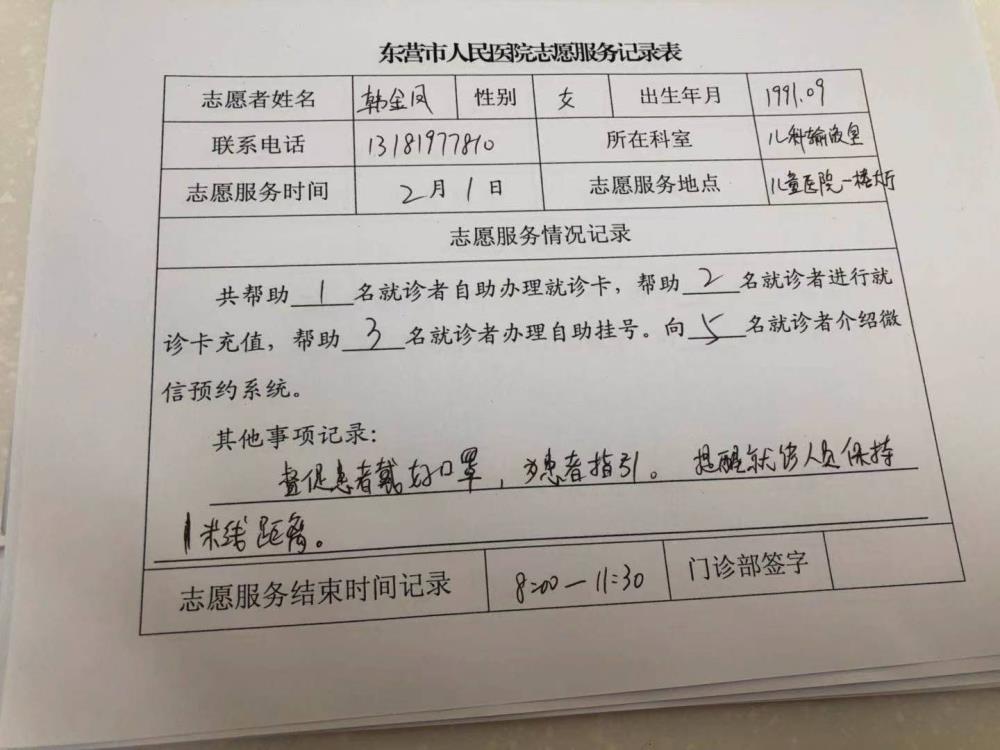 东营市人民医院志愿服务记录表
志愿者姓名 韩金凤 性别 女 出生年月 1991.09
联系电话 13181977810 所在科室 儿科输液室
志愿服务时间 2月1日 志愿服务地点 儿童医院一楼大厅
志愿服务情况记录
共帮助1名就诊者自助办理就诊卡，帮助2名就诊者进行就
诊卡充值，帮助3名就诊者办理自助挂号。向5名就诊者介绍微
信预约系统。
其他事项记录：
督促患者戴好口罩，为患者指引。提醒就诊人员保持
1米线距离。
志愿服务结束时间记录 8:00—11:30 门诊部签字